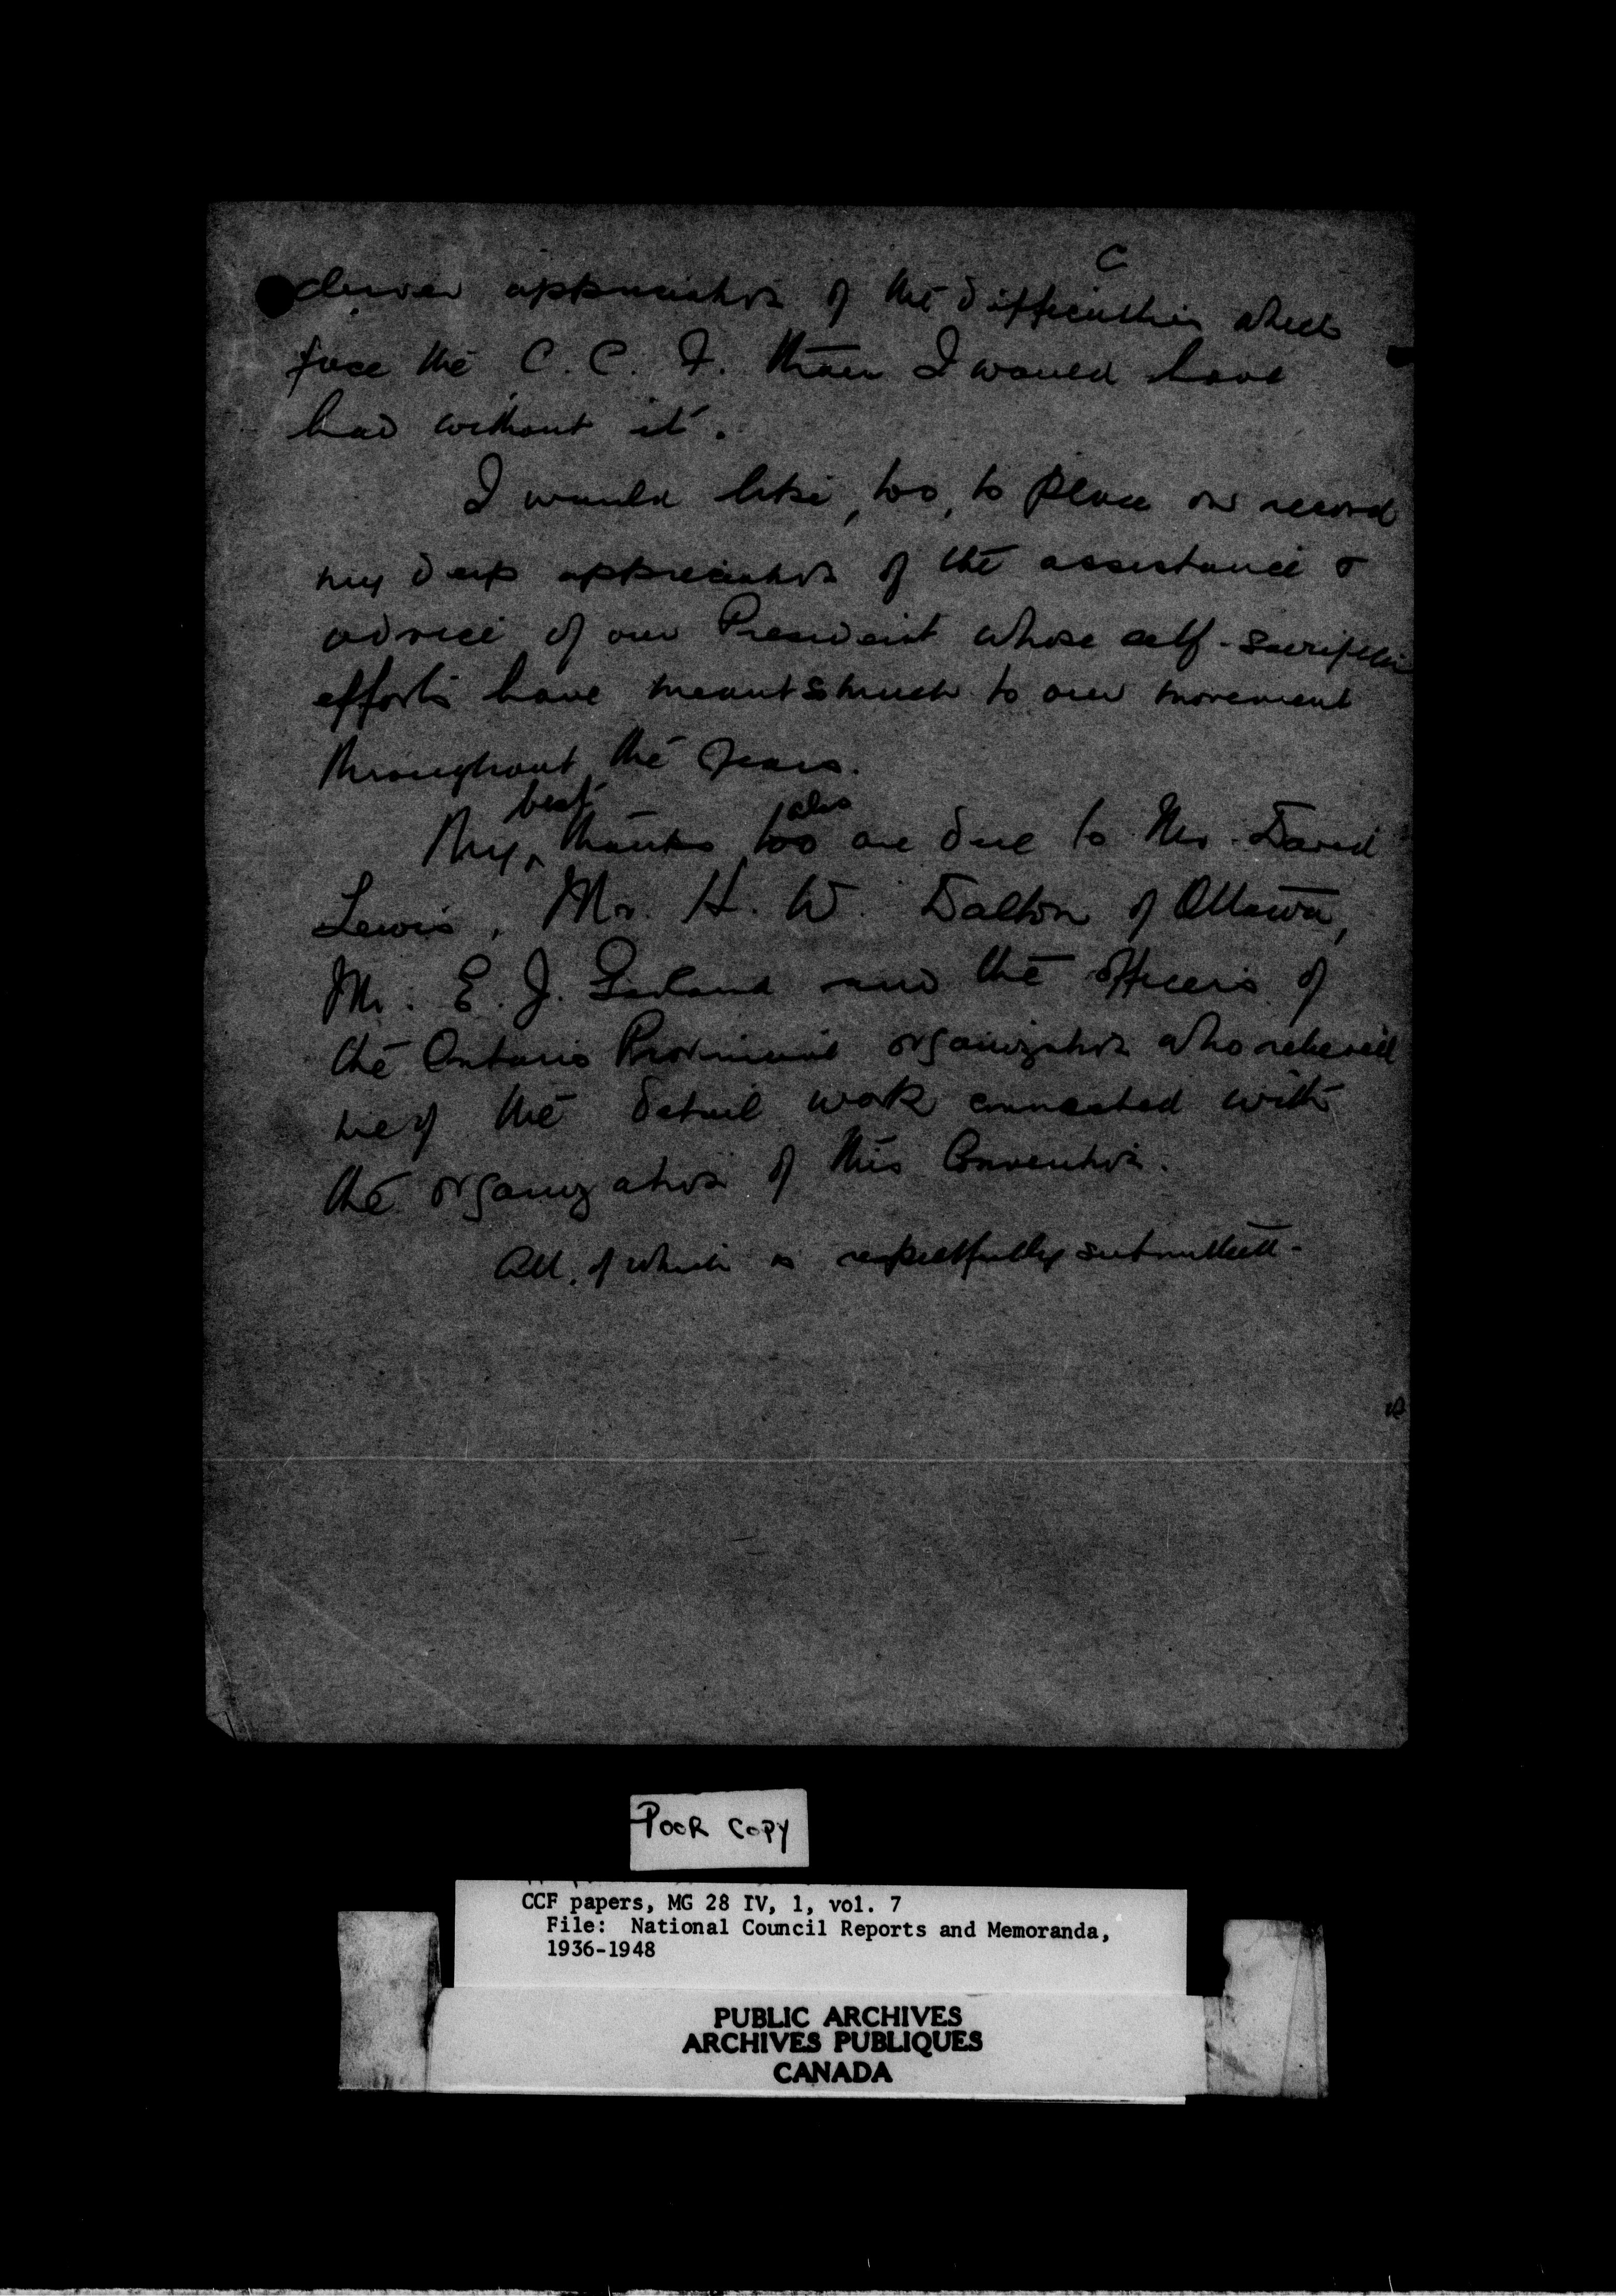 C
appreciation of the difficulties which
face the C. C. F. than I would have
had without it.
I would like, too, to place on record
my deep appreciation of the assistance &
advice of our President whose self-sacrificing
efforts have meant so much to our movement
throughout the years.
My best thanks too also are due to Mr. David
Lewis, Mr. H. W. Dalton of Ottawa,
Mr. E. J. Garland and the officers of
the Ontario Provincial organization who relieved
me of the detail work connected with
the organization of this Convention.
All of which is respectfully submitted.
POOR COPY
CCF papers, MG 28 IV, 1, vol. 7
File: National Council Reports and Memoranda,
1936-1948
PUBLIC ARCHIVES
ARCHIVES PUBLIQUES
CANADA